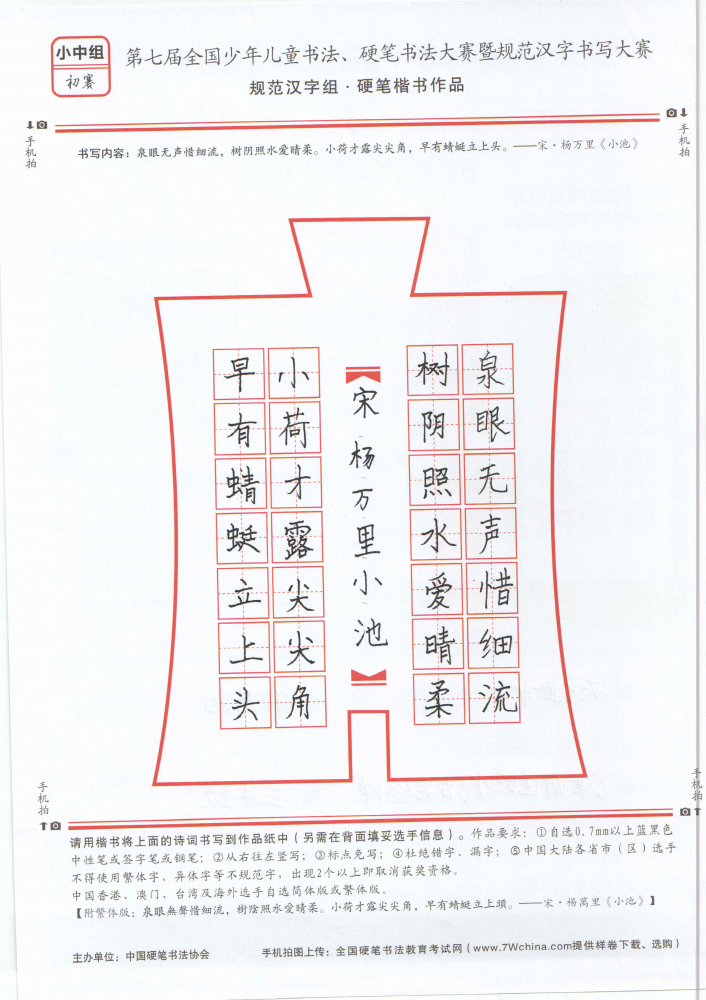 小中组
初赛
第七届全国少年儿童书法、硬笔书法大赛暨规范汉字书写大赛
规范汉字组·硬笔楷书作品
手机拍
手机拍
书写内容：泉眼无声惜细流，树阴照水爱晴柔。小荷才露尖尖角，早有蜻蜓立上头。——宋·杨万里《小池》
泉眼无声惜细流
树阴照水爱晴柔
宋杨万里小池
小荷才露尖尖角
早有蜻蜓立上头
手机拍
手机拍
请用楷书将上面的诗词书写到作品纸中（另需在背面填妥选手信息）。作品要求：①自选0.7mm以上蓝黑色
中性笔或签字笔或钢笔；②从右往左竖写；③标点免写；④杜绝错字、漏字；⑤中国大陆各省市（区）选手
不得使用繁体字、异体字等不规范字，出现2个以上即取消获奖资格。
中国香港、澳门、台湾及海外选手自选简体版或繁体版。
【附繁体版：泉眼無聲惜细流，樹陰照水愛晴柔。小荷才露尖尖角，早有蜻蜓立上頭。——宋·楊萬里《小池》】
主办单位：中国硬笔书法协会
手机拍图上传：全国硬笔书法教育考试网（www.7Wchina.com提供样卷下载、选购）